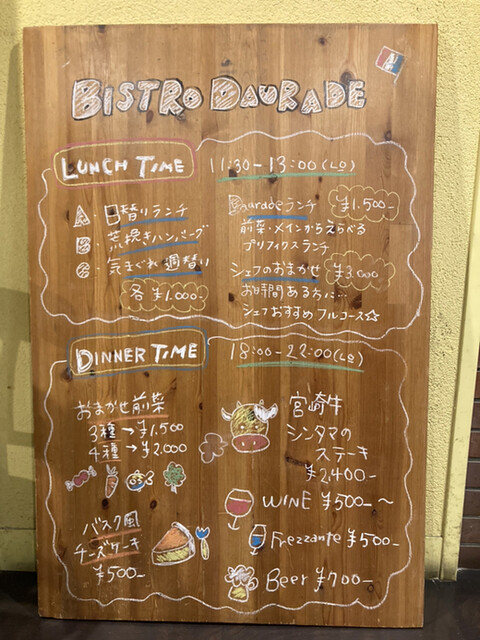 BISTRO DAURADE
LUNCH TIME 11:30-13:00(LO)
A. 日替りランチ
B. 荒挽きハンバーグ
C. 気まぐれ週替り
各¥1,000-
Dauradeランチ ¥1,500-
前菜・メインからえらべる
プリフィクスランチ
シェフのおまかせ ¥3,000
お時間ある方に…
シェフおすすめフルコース☆
DINNER TIME 18:00-22:00(LO)
おまかせ前菜
3種→¥1,500
4種→¥2,000
バスク風
チーズケーキ
¥500-
宮崎牛
シンタマの
ステーキ
¥2,400-
WINE ¥500-～
Frezzante ¥500-
Beer ¥700-